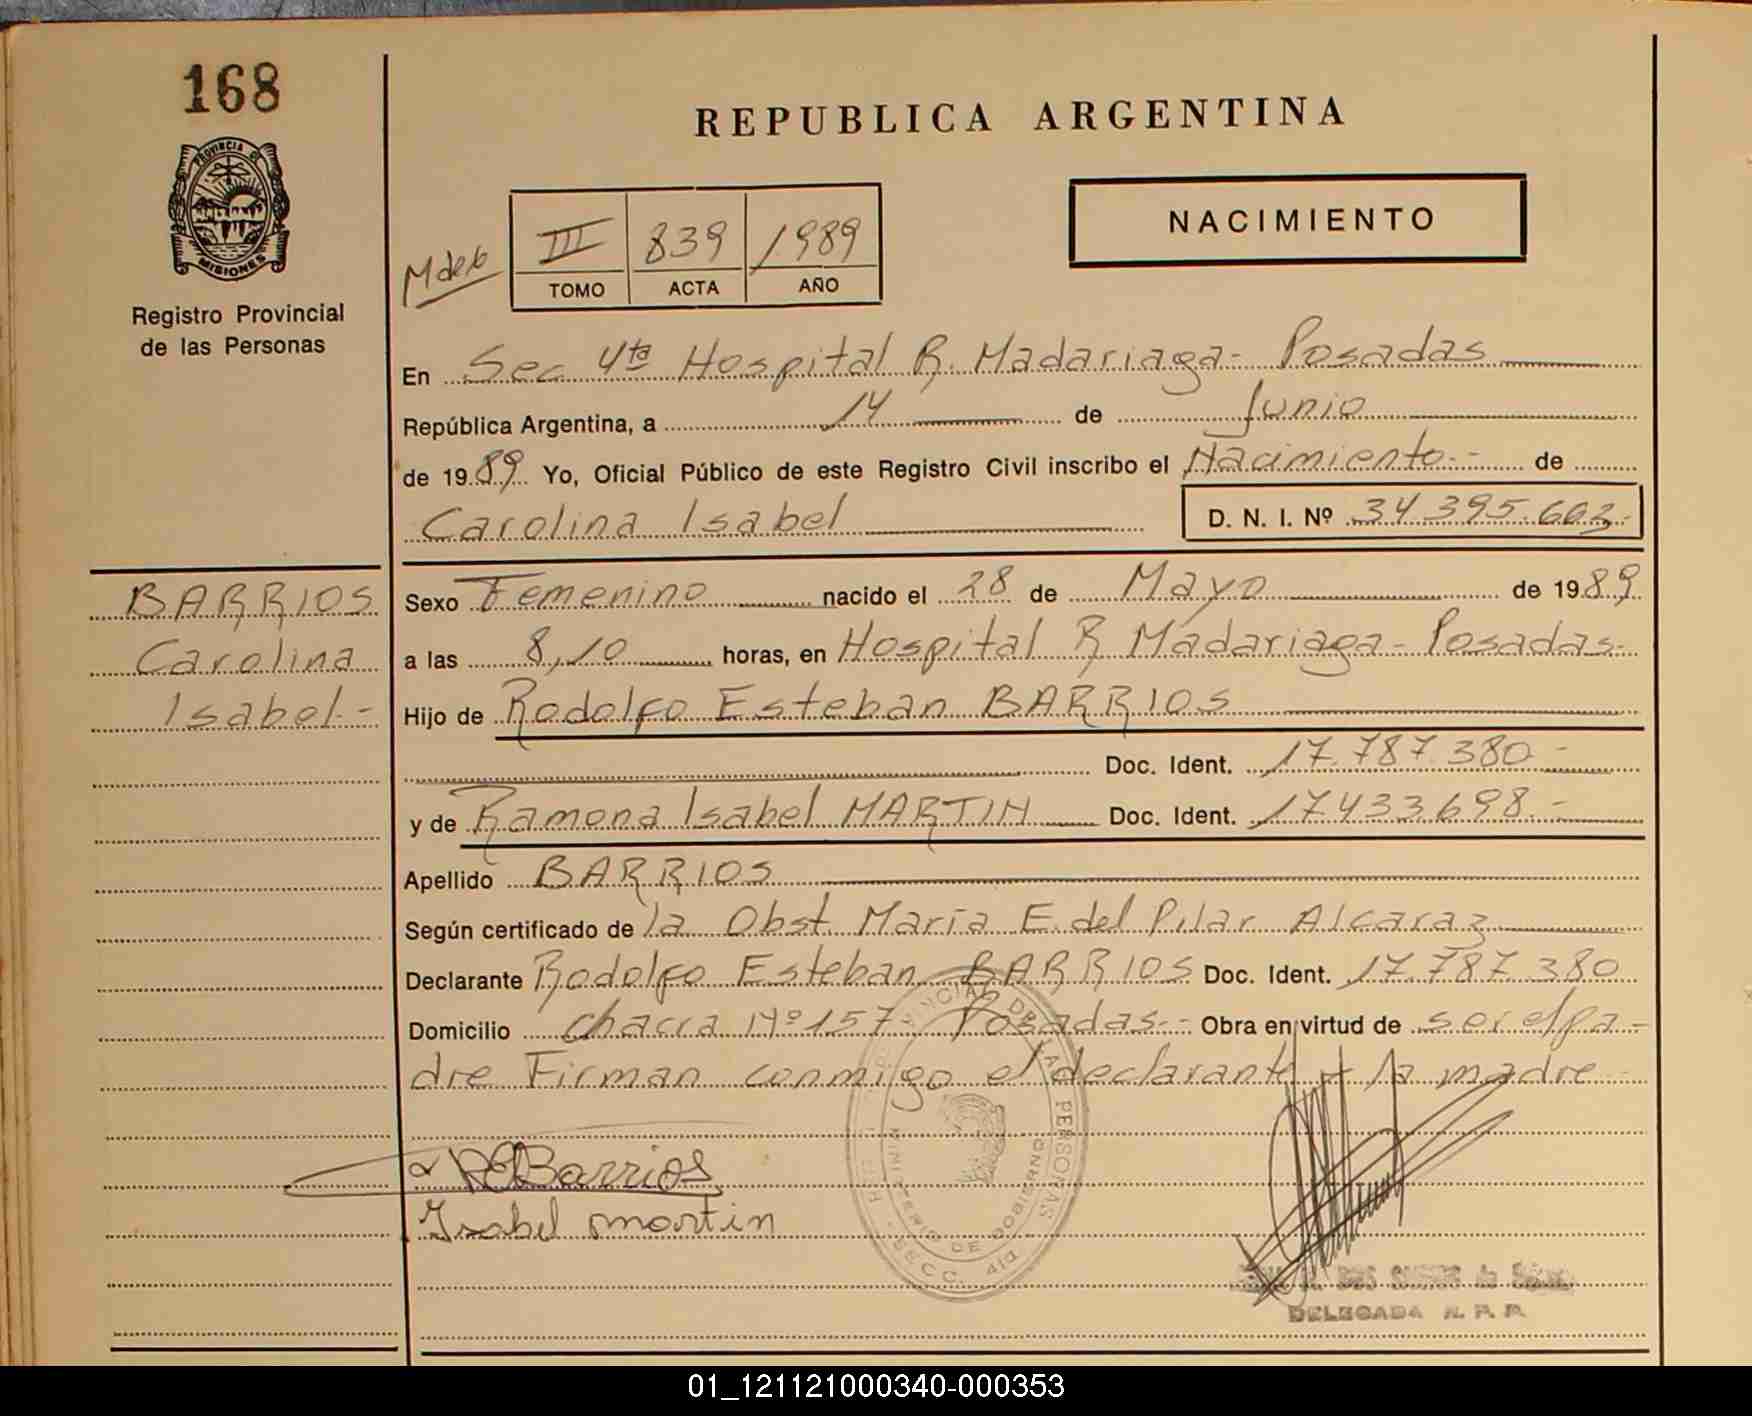 168
PROVINCIA DE
MISIONES
Registro Provincial
de las Personas
REPUBLICA ARGENTINA
NACIMIENTO
III 839 1989
TOMO ACTA AÑO
En Sec 4ta Hospital R. Madariaga - Posadas
República Argentina, a 14 de Junio
de 1989 Yo, Oficial Público de este Registro Civil inscribo el Nacimiento - de
Carolina Isabel D. N. I. Nº 34 395.603-
BARRIOS
Carolina
Isabel.-
Sexo Femenino nacido el 28 de Mayo de 1989
a las 8,10 horas, en Hospital R Madariaga - Posadas-
Hijo de Rodolfo Esteban BARRIOS
Doc. Ident. 17.787.380-
y de Ramona Isabel MARTIN Doc. Ident. 17433698.-
Apellido BARRIOS
Según certificado de la Obst. María E. del Pilar Alcaraz
Declarante Rodolfo Esteban BARRIOS Doc. Ident. 17.787.380
Domicilio chacra Nº 157- Posadas.- Obra en virtud de ser el pa-
dre Firman conmigo el declarante y la madre
REBarrios
Isabel martin
PERSONAS
MINISTERIO DE GOBIERNO
SECC. 4ta
DELEGADA R. P. P.
01_121121000340-000353